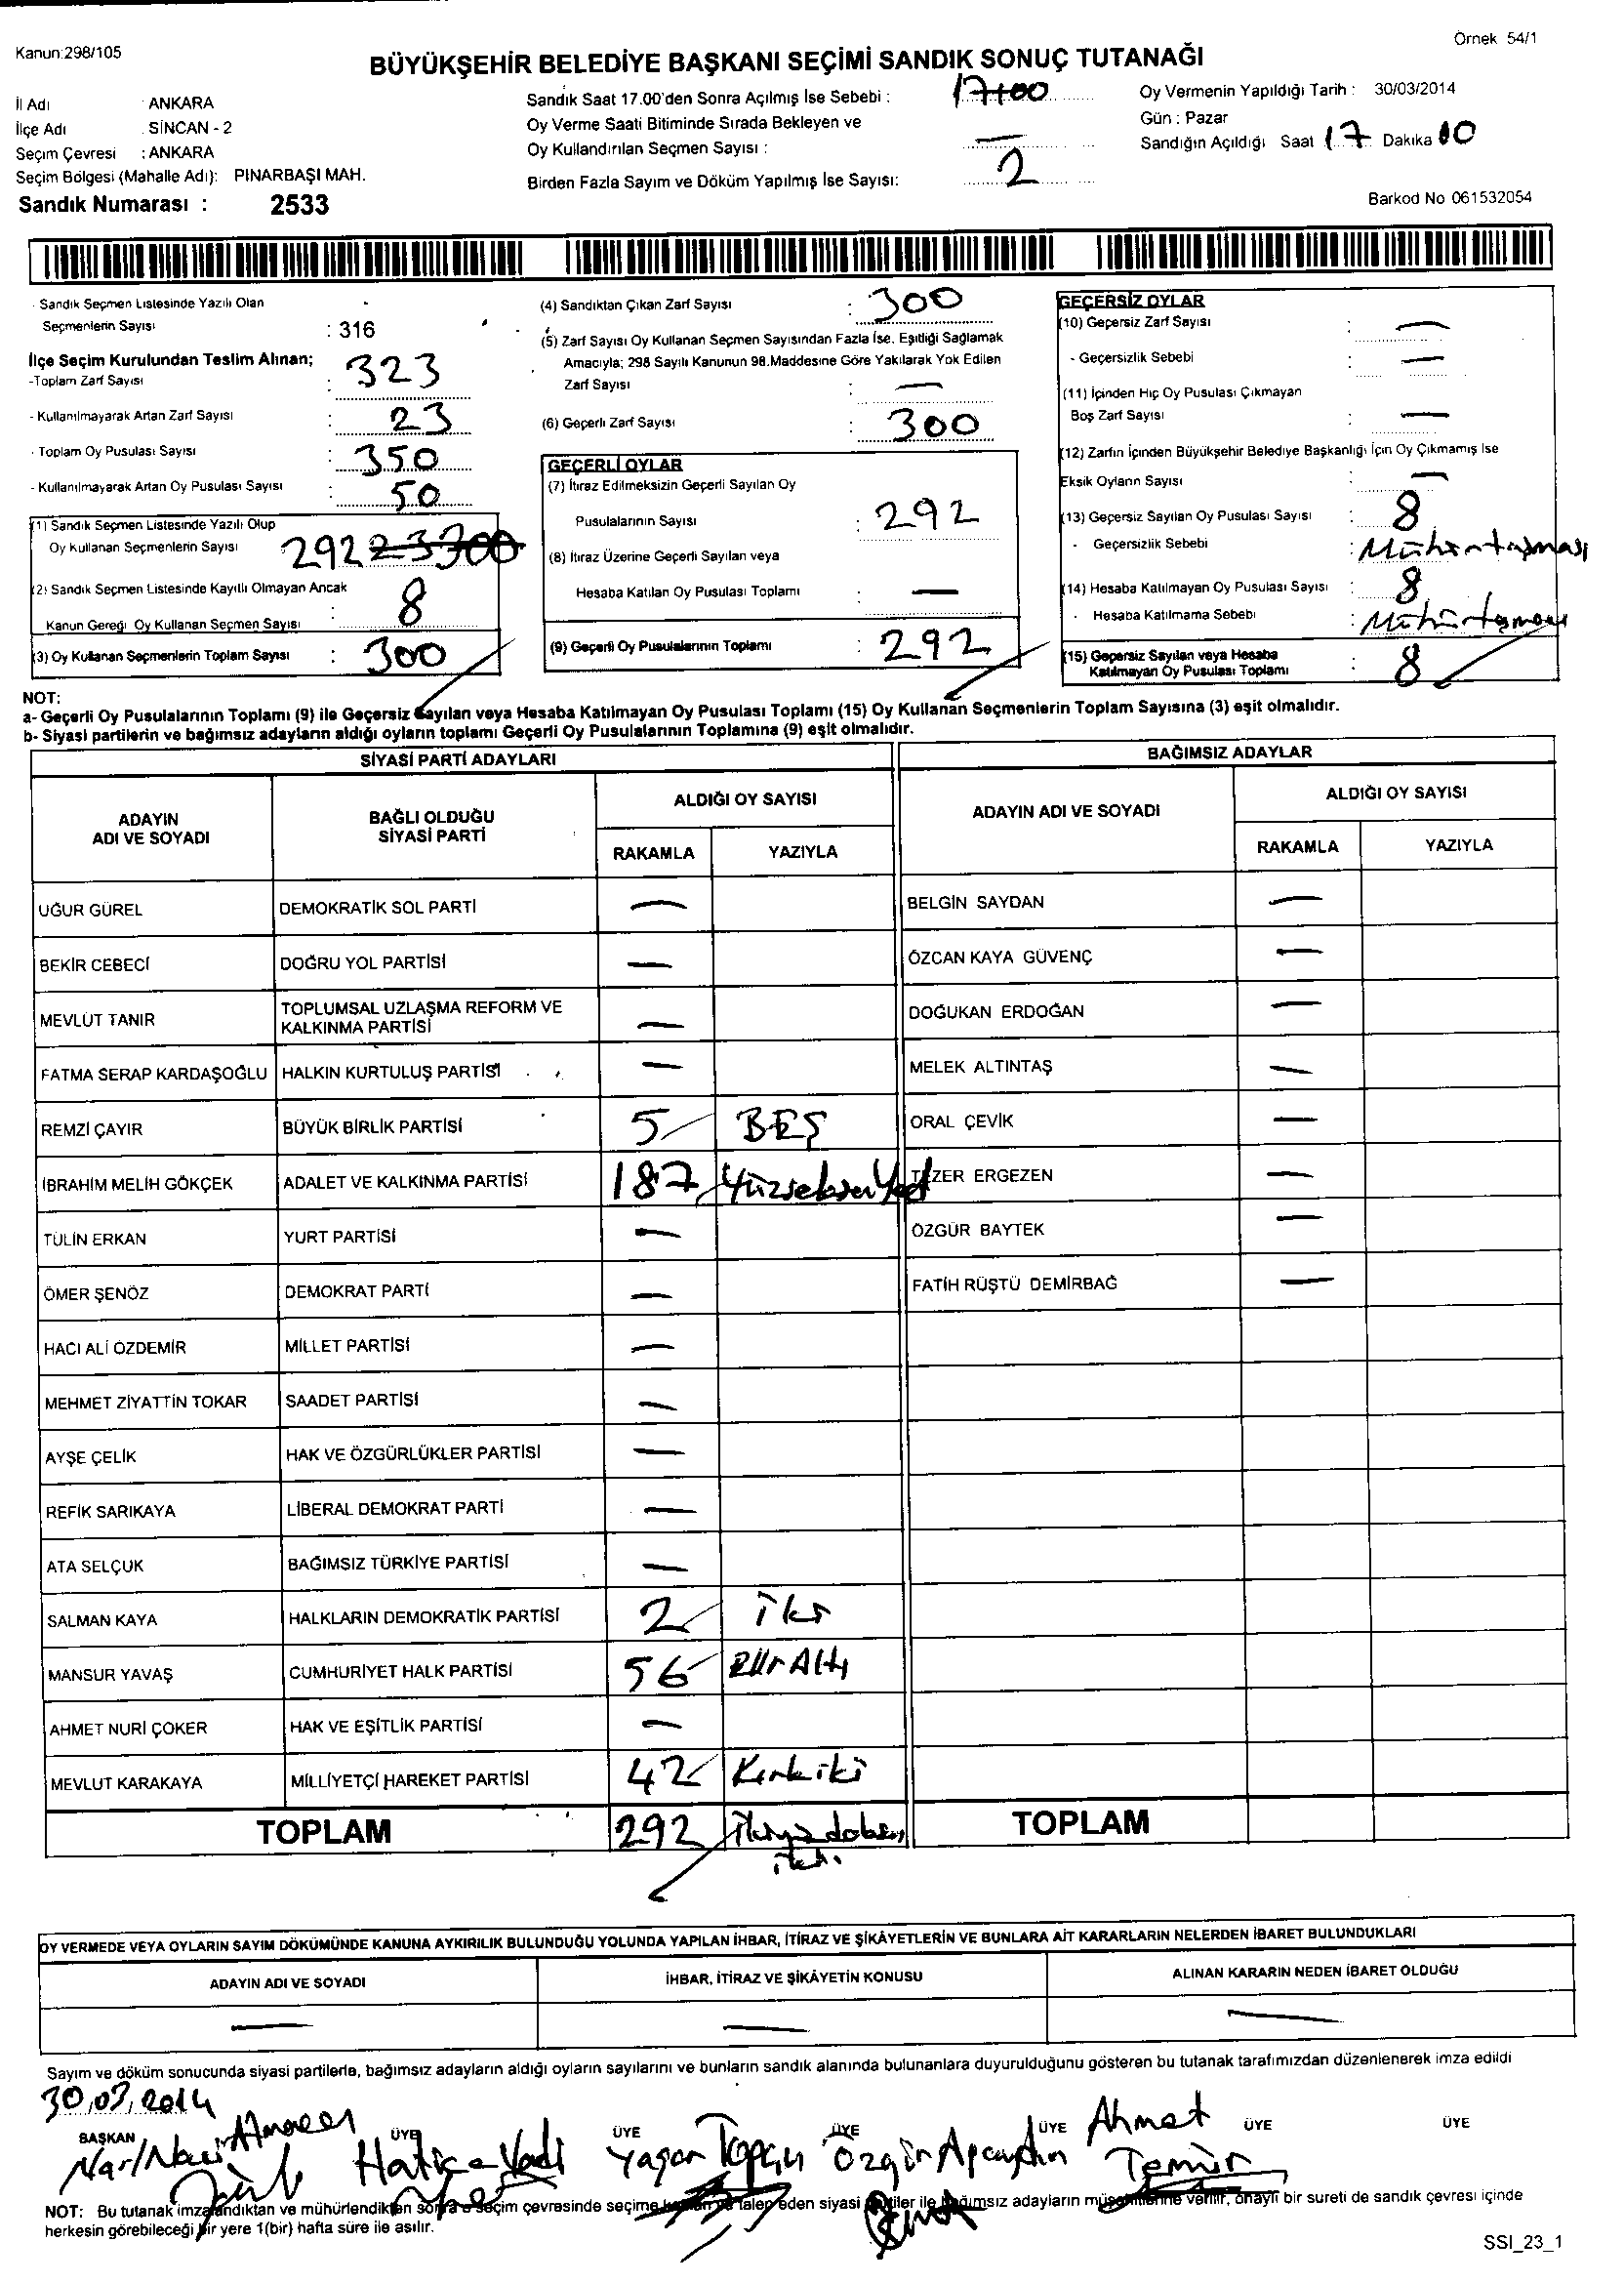 Kanun:298/105
Örnek 54/1
BÜYÜKŞEHİR BELEDİYE BAŞKANI SEÇİMİ SANDIK SONUÇ TUTANAĞI
İl Adı : ANKARA
İlçe Adı : SİNCAN - 2
Seçim Çevresi : ANKARA
Seçim Bölgesi (Mahalle Adı): PINARBAŞI MAH.
Sandık Numarası : 2533
Sandık Saat 17.00'den Sonra Açılmış İse Sebebi : 17:00
Oy Verme Saati Bitiminde Sırada Bekleyen ve
Oy Kullandırılan Seçmen Sayısı : —
Birden Fazla Sayım ve Döküm Yapılmış İse Sayısı: 2
Oy Vermenin Yapıldığı Tarih : 30/03/2014
Gün : Pazar
Sandığın Açıldığı Saat 17 Dakika 00
Barkod No 061532054
Sandık Seçmen Listesinde Yazılı Olan
Seçmenlerin Sayısı : 316
İlçe Seçim Kurulundan Teslim Alınan;
-Toplam Zarf Sayısı : 323
- Kullanılmayarak Artan Zarf Sayısı : 23
- Toplam Oy Pusulası Sayısı : 350
- Kullanılmayarak Artan Oy Pusulası Sayısı : 50
(1) Sandık Seçmen Listesinde Yazılı Olup
Oy Kullanan Seçmenlerin Sayısı 292
(2) Sandık Seçmen Listesinde Kayıtlı Olmayan Ancak
Kanun Gereği Oy Kullanan Seçmen Sayısı : 8
(3) Oy Kullanan Seçmenlerin Toplam Sayısı : 300
(4) Sandıktan Çıkan Zarf Sayısı : 300
(5) Zarf Sayısı Oy Kullanan Seçmen Sayısından Fazla İse, Eşitliği Sağlamak
Amacıyla; 298 Sayılı Kanunun 98.Maddesine Göre Yakılarak Yok Edilen
Zarf Sayısı : —
(6) Geçerli Zarf Sayısı : 300
GEÇERLİ OYLAR
(7) İtiraz Edilmeksizin Geçerli Sayılan Oy
Pusulalarının Sayısı : 292
(8) İtiraz Üzerine Geçerli Sayılan veya
Hesaba Katılan Oy Pusulası Toplamı : —
(9) Geçerli Oy Pusulalarının Toplamı : 292
GEÇERSİZ OYLAR
(10) Geçersiz Zarf Sayısı : —
- Geçersizlik Sebebi : —
(11) İçinden Hiç Oy Pusulası Çıkmayan
Boş Zarf Sayısı : —
(12) Zarfın İçinden Büyükşehir Belediye Başkanlığı İçin Oy Çıkmamış İse
Eksik Oyların Sayısı : —
(13) Geçersiz Sayılan Oy Pusulası Sayısı : 8
- Geçersizlik Sebebi : Mühür taşması
(14) Hesaba Katılmayan Oy Pusulası Sayısı : 8
- Hesaba Katılmama Sebebi : Mühür taşması
(15) Geçersiz Sayılan veya Hesaba
Katılmayan Oy Pusulası Toplamı : 8
NOT:
a- Geçerli Oy Pusulalarının Toplamı (9) ile Geçersiz Sayılan veya Hesaba Katılmayan Oy Pusulası Toplamı (15) Oy Kullanan Seçmenlerin Toplam Sayısına (3) eşit olmalıdır.
b- Siyasi partilerin ve bağımsız adayların aldığı oyların toplamı Geçerli Oy Pusulalarının Toplamına (9) eşit olmalıdır.
SİYASİ PARTİ ADAYLARI
ADAYIN ADI VE SOYADI
BAĞLI OLDUĞU SİYASİ PARTİ
ALDIĞI OY SAYISI
RAKAMLA YAZIYLA
UĞUR GÜREL DEMOKRATİK SOL PARTİ —
BEKİR CEBECİ DOĞRU YOL PARTİSİ —
MEVLÜT TANIR TOPLUMSAL UZLAŞMA REFORM VE
KALKINMA PARTİSİ —
FATMA SERAP KARDAŞOĞLU HALKIN KURTULUŞ PARTİSİ —
REMZİ ÇAYIR BÜYÜK BİRLİK PARTİSİ 5 BEŞ
İBRAHİM MELİH GÖKÇEK ADALET VE KALKINMA PARTİSİ 187 Yüzseksenyedi
TÜLİN ERKAN YURT PARTİSİ —
ÖMER ŞENÖZ DEMOKRAT PARTİ —
HACI ALİ ÖZDEMİR MİLLET PARTİSİ —
MEHMET ZİYATTİN TOKAR SAADET PARTİSİ —
AYŞE ÇELİK HAK VE ÖZGÜRLÜKLER PARTİSİ —
REFİK SARIKAYA LİBERAL DEMOKRAT PARTİ —
ATA SELÇUK BAĞIMSIZ TÜRKİYE PARTİSİ —
SALMAN KAYA HALKLARIN DEMOKRATİK PARTİSİ 2 İki
MANSUR YAVAŞ CUMHURİYET HALK PARTİSİ 56 Elli Altı
AHMET NURİ ÇOKER HAK VE EŞİTLİK PARTİSİ —
MEVLÜT KARAKAYA MİLLİYETÇİ HAREKET PARTİSİ 42 Kırkiki
TOPLAM 292
BAĞIMSIZ ADAYLAR
ADAYIN ADI VE SOYADI
ALDIĞI OY SAYISI
RAKAMLA YAZIYLA
BELGİN SAYDAN —
ÖZCAN KAYA GÜVENÇ —
DOĞUKAN ERDOĞAN —
MELEK ALTINTAŞ —
ORAL ÇEVİK —
TEZER ERGEZEN —
ÖZGÜR BAYTEK —
FATİH RÜŞTÜ DEMİRBAĞ —
TOPLAM
OY VERMEDE VEYA OYLARIN SAYIM DÖKÜMÜNDE KANUNA AYKIRILIK BULUNDUĞU YOLUNDA YAPILAN İHBAR, İTİRAZ VE ŞİKÂYETLERİN VE BUNLARA AİT KARARLARIN NELERDEN İBARET BULUNDUKLARI
ADAYIN ADI VE SOYADI İHBAR, İTİRAZ VE ŞİKÂYETİN KONUSU ALINAN KARARIN NEDEN İBARET OLDUĞU
— — —
Sayım ve döküm sonucunda siyasi partilerle, bağımsız adayların aldığı oyların sayılarını ve bunların sandık alanında bulunanlara duyurulduğunu gösteren bu tutanak tarafımızdan düzenlenerek imza edildi
30.03.2014
BAŞKAN ÜYE ÜYE ÜYE ÜYE ÜYE ÜYE
Hatice Yaşar Topçu Özgür Apaydın Ahmet Temür
NOT: Bu tutanak imzalandıktan ve mühürlendikten sonra o seçim çevresinde seçime katılan ve talep eden siyasi partiler ile bağımsız adayların müşahitlerine verilir, onaylı bir sureti de sandık çevresi içinde
herkesin görebileceği bir yere 1(bir) hafta süre ile asılır.
SSI_23_1